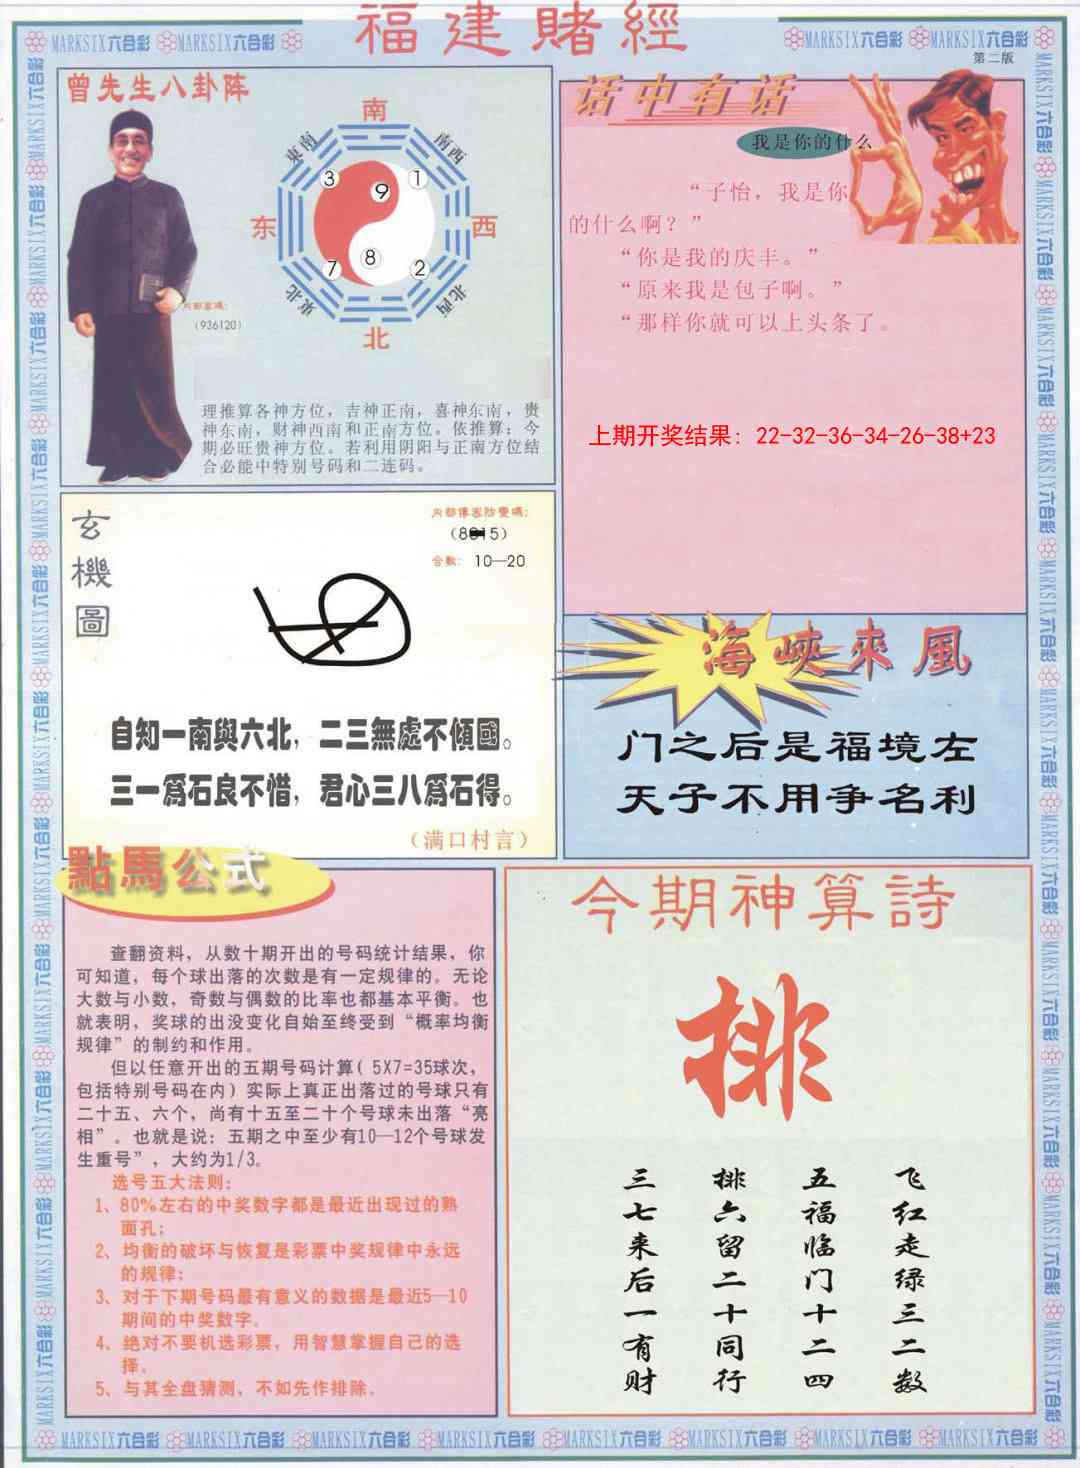 福建賭經
MARKSIX六合彩 MARKSIX六合彩
MARKSIX六合彩 MARKSIX六合彩
第二版
曾先生八卦阵
南
東南
南西
3
9
1
东
西
7
8
2
東北
北西
北
内部密碼:
(936120)
理推算各神方位，吉神正南，喜神东南，贵
神东南，财神西南和正南方位。依推算：今
期必旺贵神方位。若利用阴阳与正南方位结
合必能中特别号码和二连码。
话中有话
我是你的什么
“子怡，我是你
的什么啊？”
“你是我的庆丰。”
“原来我是包子啊。”
“那样你就可以上头条了。
上期开奖结果：22-32-36-34-26-38+23
玄機圖
内部傳密防變碼:
合數: 10—20
自知一南與六北，二三無處不傾國。
三一爲石良不惜，君心三八爲石得。
（满口村言）
海峽來風
门之后是福境左
天子不用争名利
點馬公式
查翻资料，从数十期开出的号码统计结果，你
可知道，每个球出落的次数是有一定规律的。无论
大数与小数，奇数与偶数的比率也都基本平衡。也
就表明，奖球的出没变化自始至终受到“概率均衡
规律”的制约和作用。
但以任意开出的五期号码计算( 5X7=35球次，
包括特别号码在内）实际上真正出落过的号球只有
二十五、六个，尚有十五至二十个号球未出落“亮
相”。也就是说：五期之中至少有10—12个号球发
生重号”，大约为1/3。
选号五大法则：
1、80%左右的中奖数字都是最近出现过的熟
面孔；
2、均衡的破坏与恢复是彩票中奖规律中永远
的规律；
3、对于下期号码最有意义的数据是最近5—10
期间的中奖数字。
4、绝对不要机选彩票，用智慧掌握自己的选
择。
5、与其全盘猜测，不如先作排除。
今期神算詩
排
飞红走绿三二数
五福临门十二四
排六留二十同行
三七来后一有财
MARKSIX六合彩 MARKSIX六合彩 MARKSIX六合彩 MARKSIX六合彩 MARKSIX六合彩 MARKSIX六合彩 MARKSIX六合彩 MARKSIX六合彩